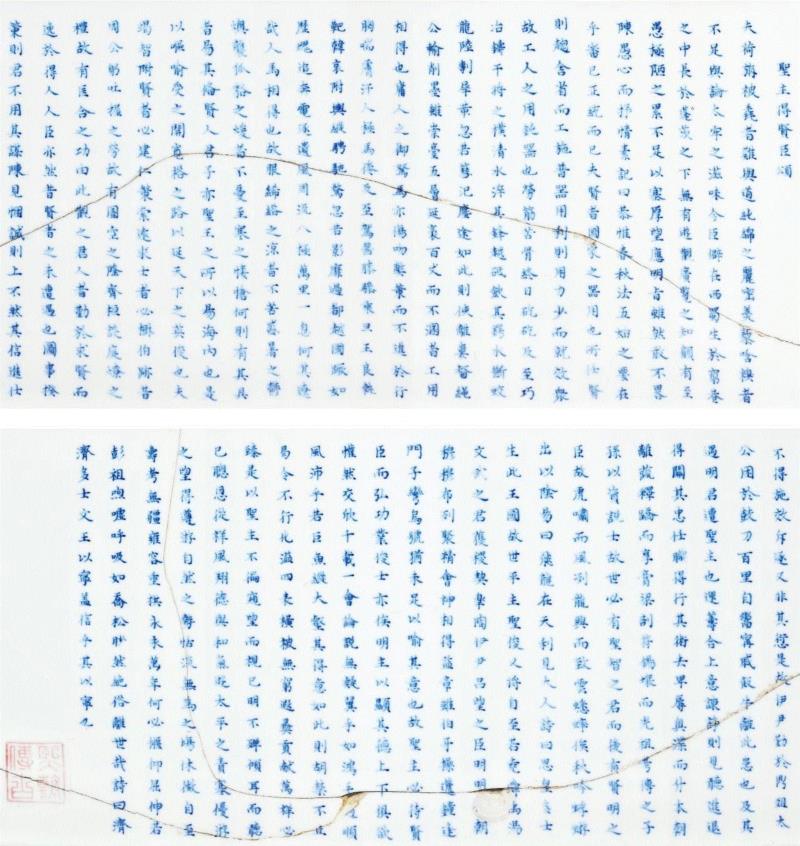 聖主得賢臣頌
夫荷旃被毳者難與道純綿之麗密羹藜唅糗者
不足與論太牢之滋味今臣僻在西蜀生於窮巷
之中長於蓬茨之下無有遊觀廣覽之知顧有至
愚極陋之累不足以塞厚望應明旨雖然敢不畧
陳愚心而抒情素記曰恭惟春秋法五始之要在
乎審己正統而已夫賢者國家之器用也所任賢
則趨舍省而工施普器用利則用力少而就效衆
故工人之用鈍器也勞筋苦骨終日矻矻及至巧
冶鑄干將之樸清水淬其鋒越砥斂其鍔水斷蛟
龍陸剸犀革忽若篲氾塵塗如此則使離婁督繩
公輸削墨雖崇臺五層延袤百丈而不溷者工用
相得也庸人之御駑馬亦傷吻弊策而不進於行
胸喘膚汗人極馬倦及至駕齧膝驂乘旦王良執
靶韓哀附輿縱騁馳騖忽若影靡過都越國蹶如
歷塊追奔電逐遺風周流八極萬里一息何其遼
哉人馬相得也故服絺綌之涼者不苦盛暑之鬱
燠襲狐貉之煖者不憂至寒之悽愴何則有其具
者易其備賢人君子亦聖王之所以易海內也是
以嘔喻受之開寬裕之路以延天下之英俊也夫
竭智附賢者必建仁策索遠求士者必樹伯跡昔
周公躬吐握之勞故有圄空之隆齊桓設庭燎之
禮故有匡合之功由此觀之君人者勤於求賢而
逸於得人人臣亦然昔賢者之未遭遇也圖事揆
策則君不用其謀陳見悃誠則上不然其信進仕
不得施效斥逐又非其愆是故伊尹勤於鼎俎太
公困於鼓刀百里自鬻甯戚飯牛離此患也及其
遇明君遭聖主也運籌合上意諫諍則見聽進退
得關其忠任職得行其術去卑辱奧渫而升本朝
離蔬釋蹻而享膏粱剖符錫壤而光祖考傳之子
孫以資說士故世必有聖智之君而後有賢明之
臣故虎嘯而風冽龍興而致雲蟋蟀俟秋吟蜉蝣
出以陰易曰飛龍在天利見大人詩曰思皇多士
生此王國故世平主聖俊乂將自至若堯舜禹湯
文武之君獲稷契皋陶伊尹呂望之臣明明朝
穆穆布列聚精會神相得益章雖伯牙操遞鐘逢
門子彎烏號猶未足以喻其意也故聖主必待賢
臣而弘功業俊士亦俟明主以顯其德上下俱欲
懽然交欣千載一會論說無疑翼乎如鴻毛順
風沛乎若巨魚縱大壑其得意如此則胡禁不止
曷令不行化溢四表橫被無窮遐夷貢獻萬祥必
臻是以聖主不徧窺望而視已明不殫傾耳而聽
已聰恩從祥風翱德與和氣遊太平之責塞優游
之望得遵游自然之勢恬淡無為之場休徵自至
壽考無疆雍容垂拱永永萬年何必偃仰屈伸若
彭祖喣噓呼吸如喬松眇然絕俗離世哉詩曰濟
濟多士文王以寧蓋信乎其以寧也